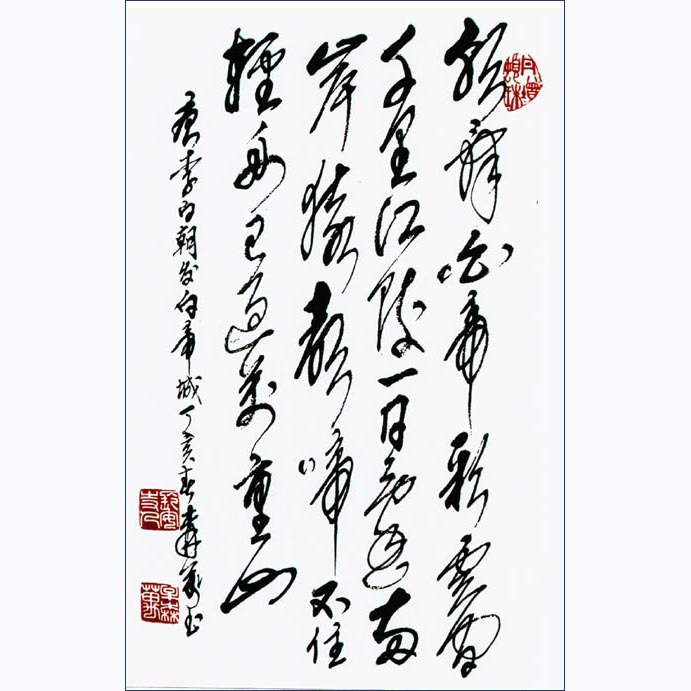 朝辞白帝彩雲間
千里江陵一日還两
岸猿聲啼不住
輕舟已過萬重山
唐李白朝发白帝城丁亥春